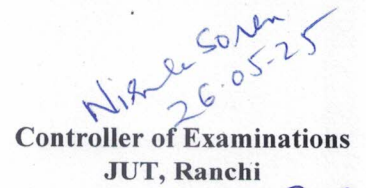 Soren
26.05-25
Controller of Examinations
JUT, Ranchi